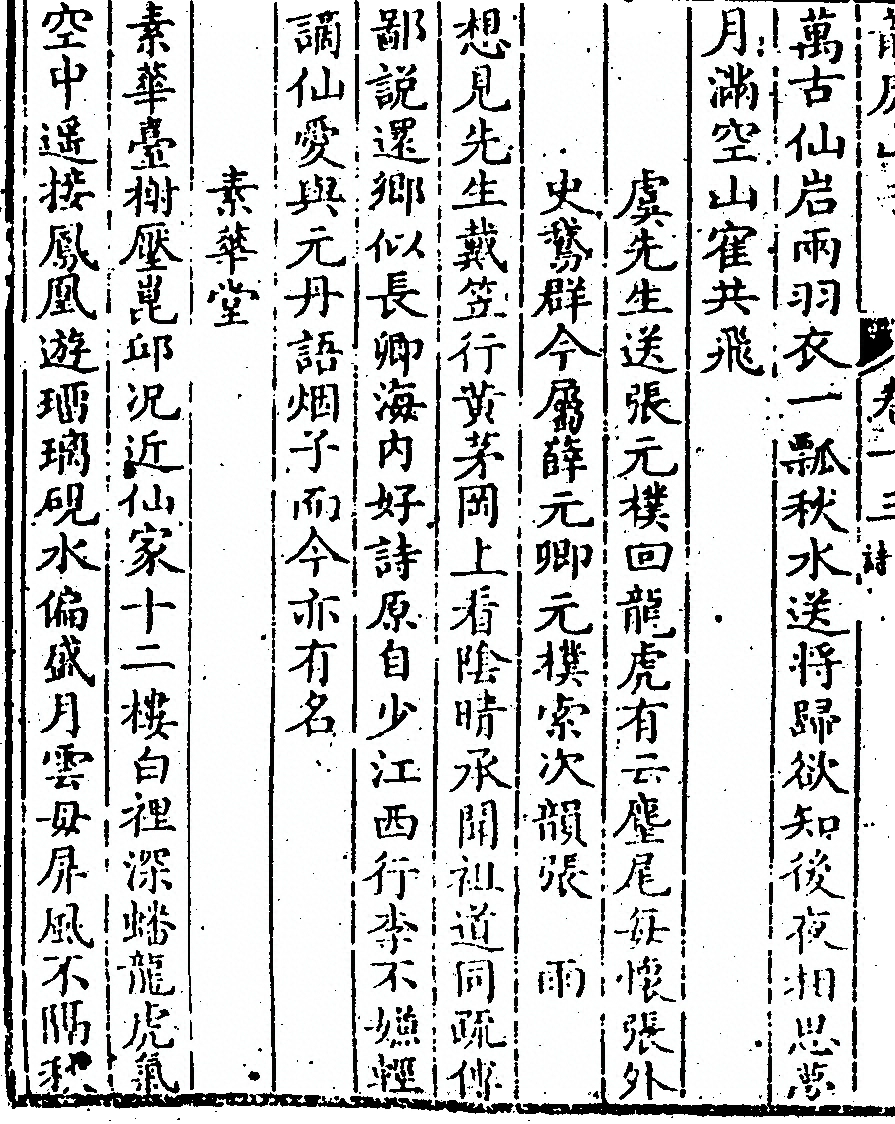 龍虎山志　卷一三　詩
萬古仙岩兩羽衣一瓢秋水送將歸欲知後夜相思夢
月滿空山寉共飛
虞先生送張元樸回龍虎有云麈尾每懷張外
史鵞群今屬薛元卿元樸索次韻張　雨
想見先生戴笠行黃茅岡上看陰晴承聞祖道同疏傅
鄙說還鄉似長卿海内好詩原自少江西行李不嫌輕
謫仙愛與元丹語烟子而今亦有名
素華堂
素華臺榭壓崑邱况近仙家十二樓白裡深蟠龍虎氣
空中遥接鳳凰遊琊璃硯水偏盛月雲母屏風不隔秋